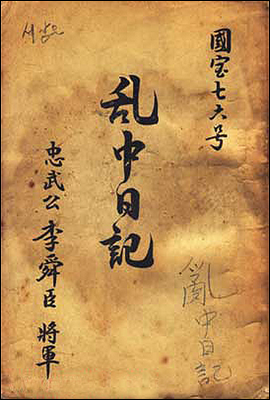 國宝七六号
乱中日記
忠武公 李舜臣 将軍
亂中日記